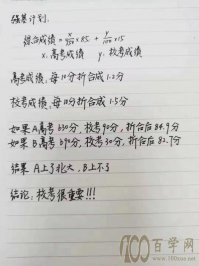 强基计划.
综合成绩 = x/750 × 85 + y/100 × 15
x.高考成绩 y.校考成绩
高考成绩,每10分折合成1.2分
校考成绩,每10分折合成1.5分
如果A高考630分,校考90分,折合后84.9分
如果B高考690分,校考30分,折合后82.7分
结果A上了北大,B上不了
结论:校考很重要!!!
100百学网